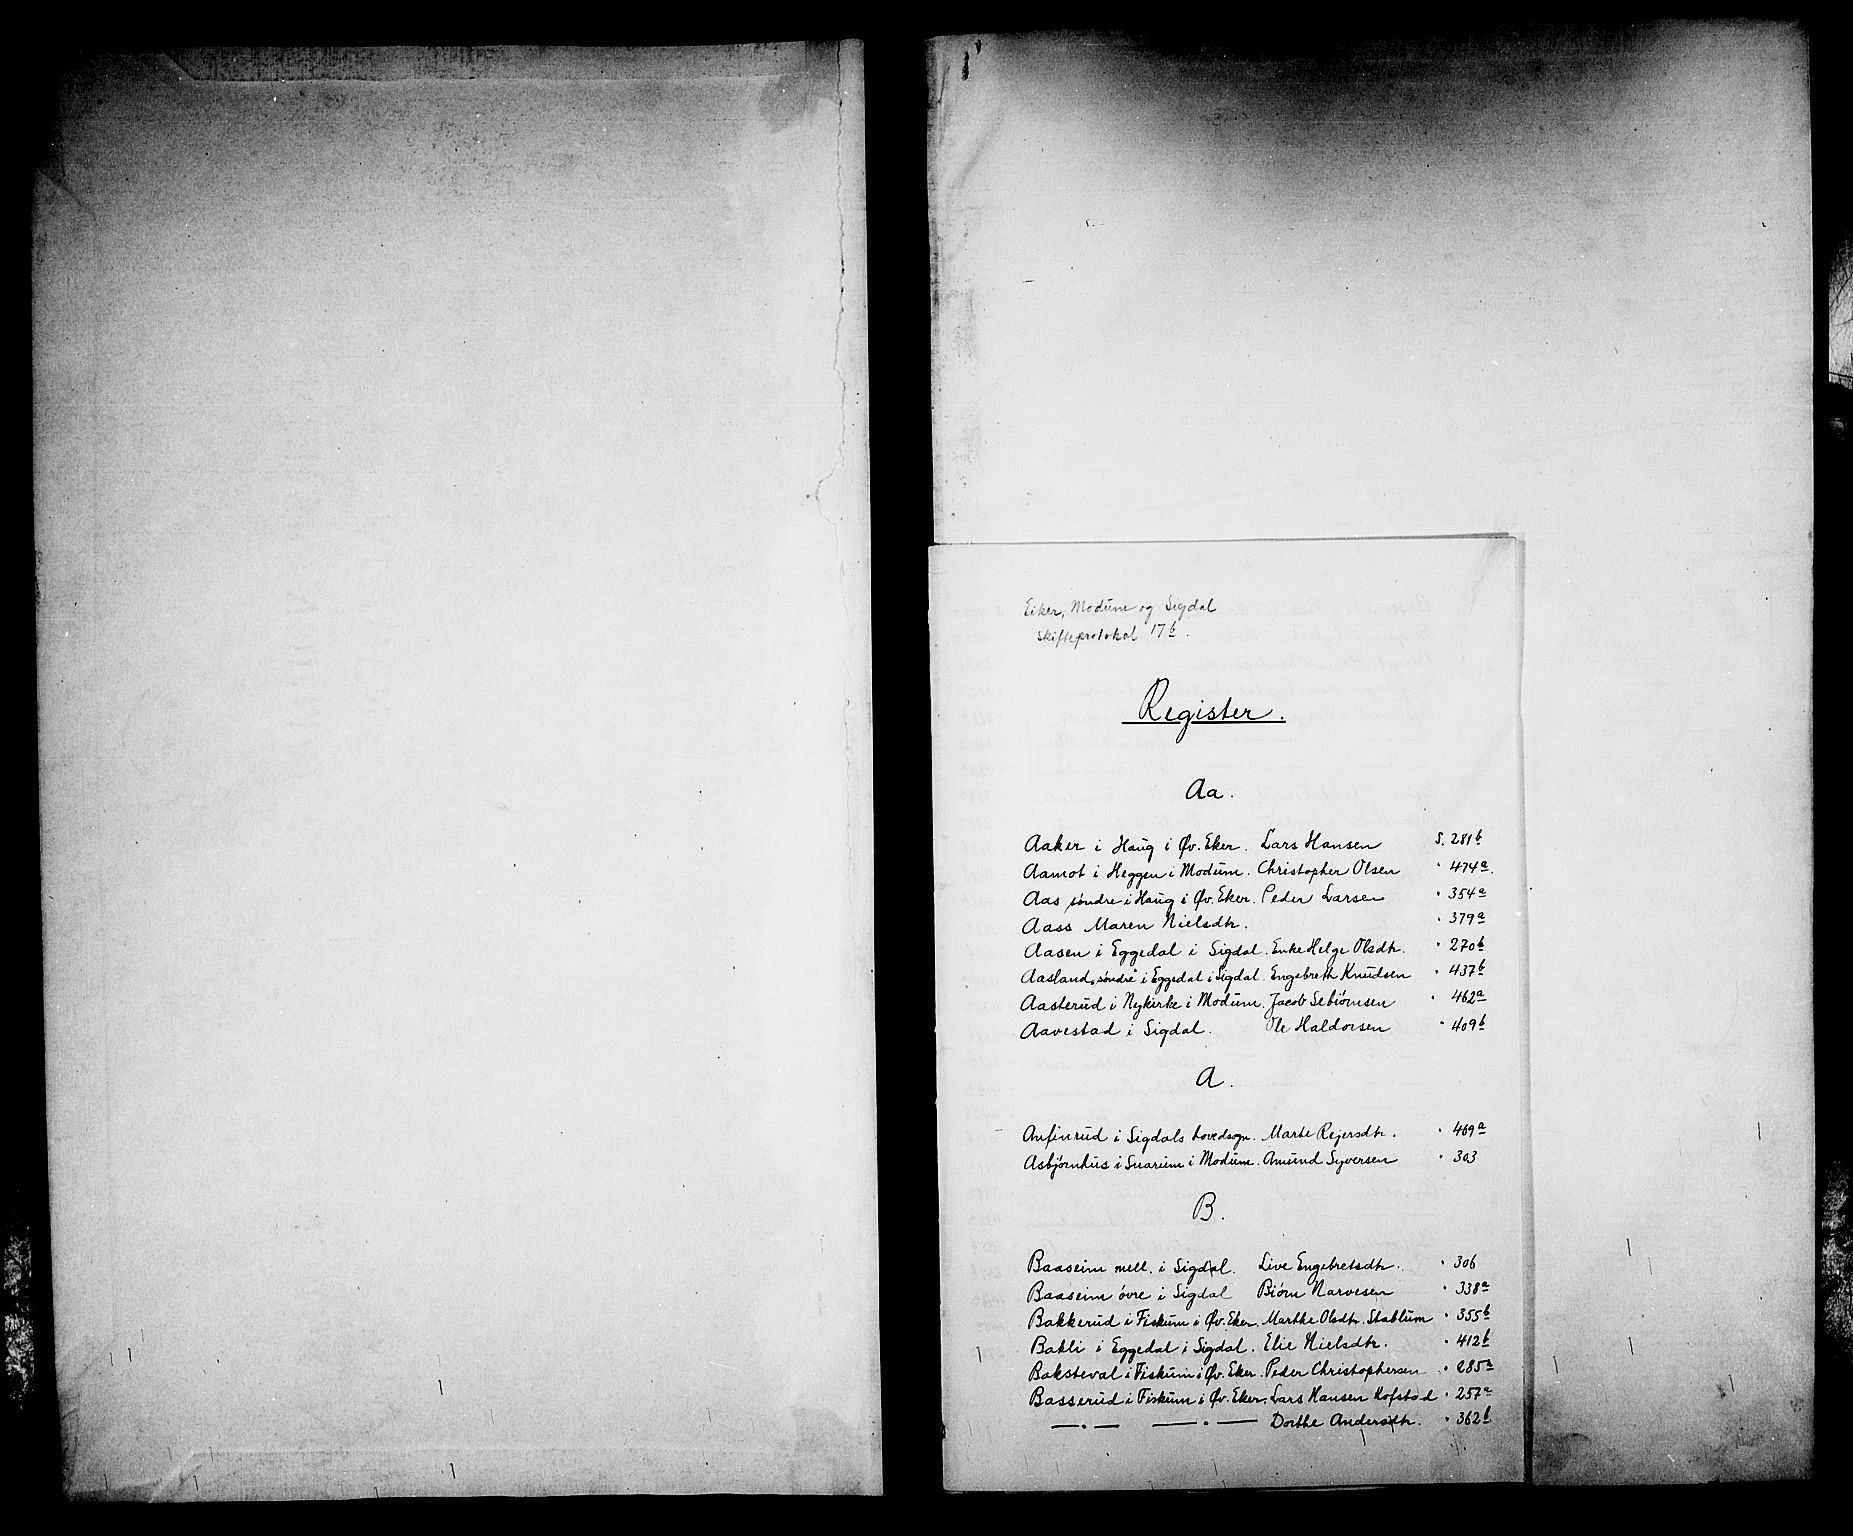 Eiker, Modum og Sigdal
skifteprotokol 17b.
Register.
Aa.
Aaker i Haug i Øv. Eker. Lars Hansen S. 281b
Aamot i Heggen i Modum. Christopher Olsen " 474a.
Aas søndre i Haug i Øv. Eker. Peder Larsen " 354a
Aass Maren Nielsdtr. " 379a
Aasen i Eggedal i Sigdal. Enke Helge Olsdtr. " 270b
Aasland, søndre i Eggedal i Sigdal. Engebreth Knudsen " 437b
Aasterud i Nykirke i Modum. Jacob Sebiørnsen " 462a
Aavestad i Sigdal. Ole Haldorsen " 409b
A.
Anfinrud i Sigdals hovedsogn. Marte Rejersdtr. " 469a
Asbjørnhus i Snarum i Modum. Amund Syversen " 303
B.
Baaseim mell. i Sigdal. Live Engebretsdtr. " 306
Baaseim øvre i Sigdal Biørn Narvesen " 338a
Bakkerud i Fiskum i Øv. Eker. Marthe Olsdtr. Stablum " 355b
Bakli i Eggedal i Sigdal. Elie Nielsdtr. " 412b
Baksteval i Fiskum i Øv. Eker. Peder Christophersen " 285a
Basserud i Fiskum i Øv. Eker. Lars Hansen Hofstad " 257a
— " — — " — Dorthe Andersdtr. " 362b